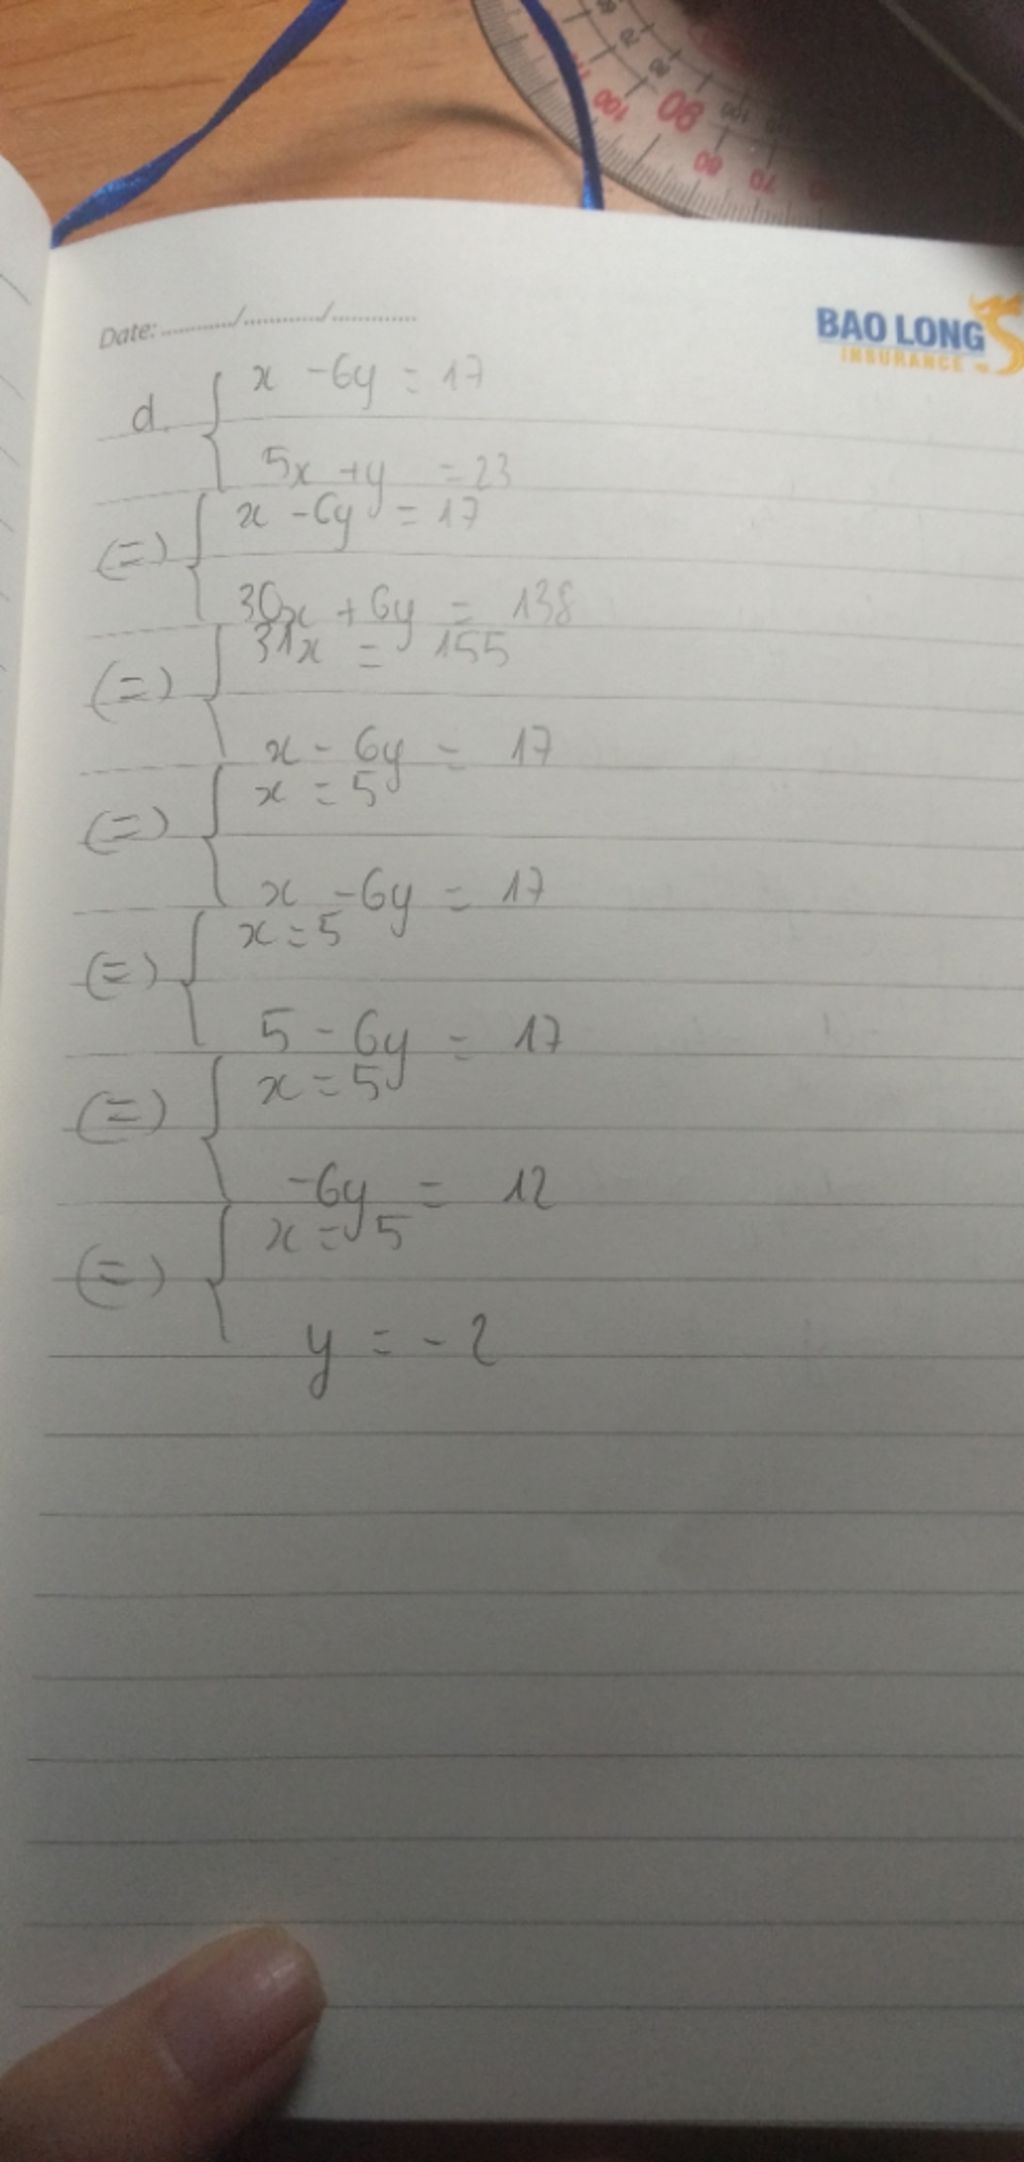 Date: ............/............/............
BAO LONG
INSURANCE
d. { x - 6y = 17
5x + y = 23
(=) { x - 6y = 17
30x + 6y = 138
(=) { 31x = 155
x - 6y = 17
(=) { x = 5
x - 6y = 17
(=) { x = 5
5 - 6y = 17
(=) { x = 5
-6y = 12
(=) { x = 5
y = -2
100
90
80
70